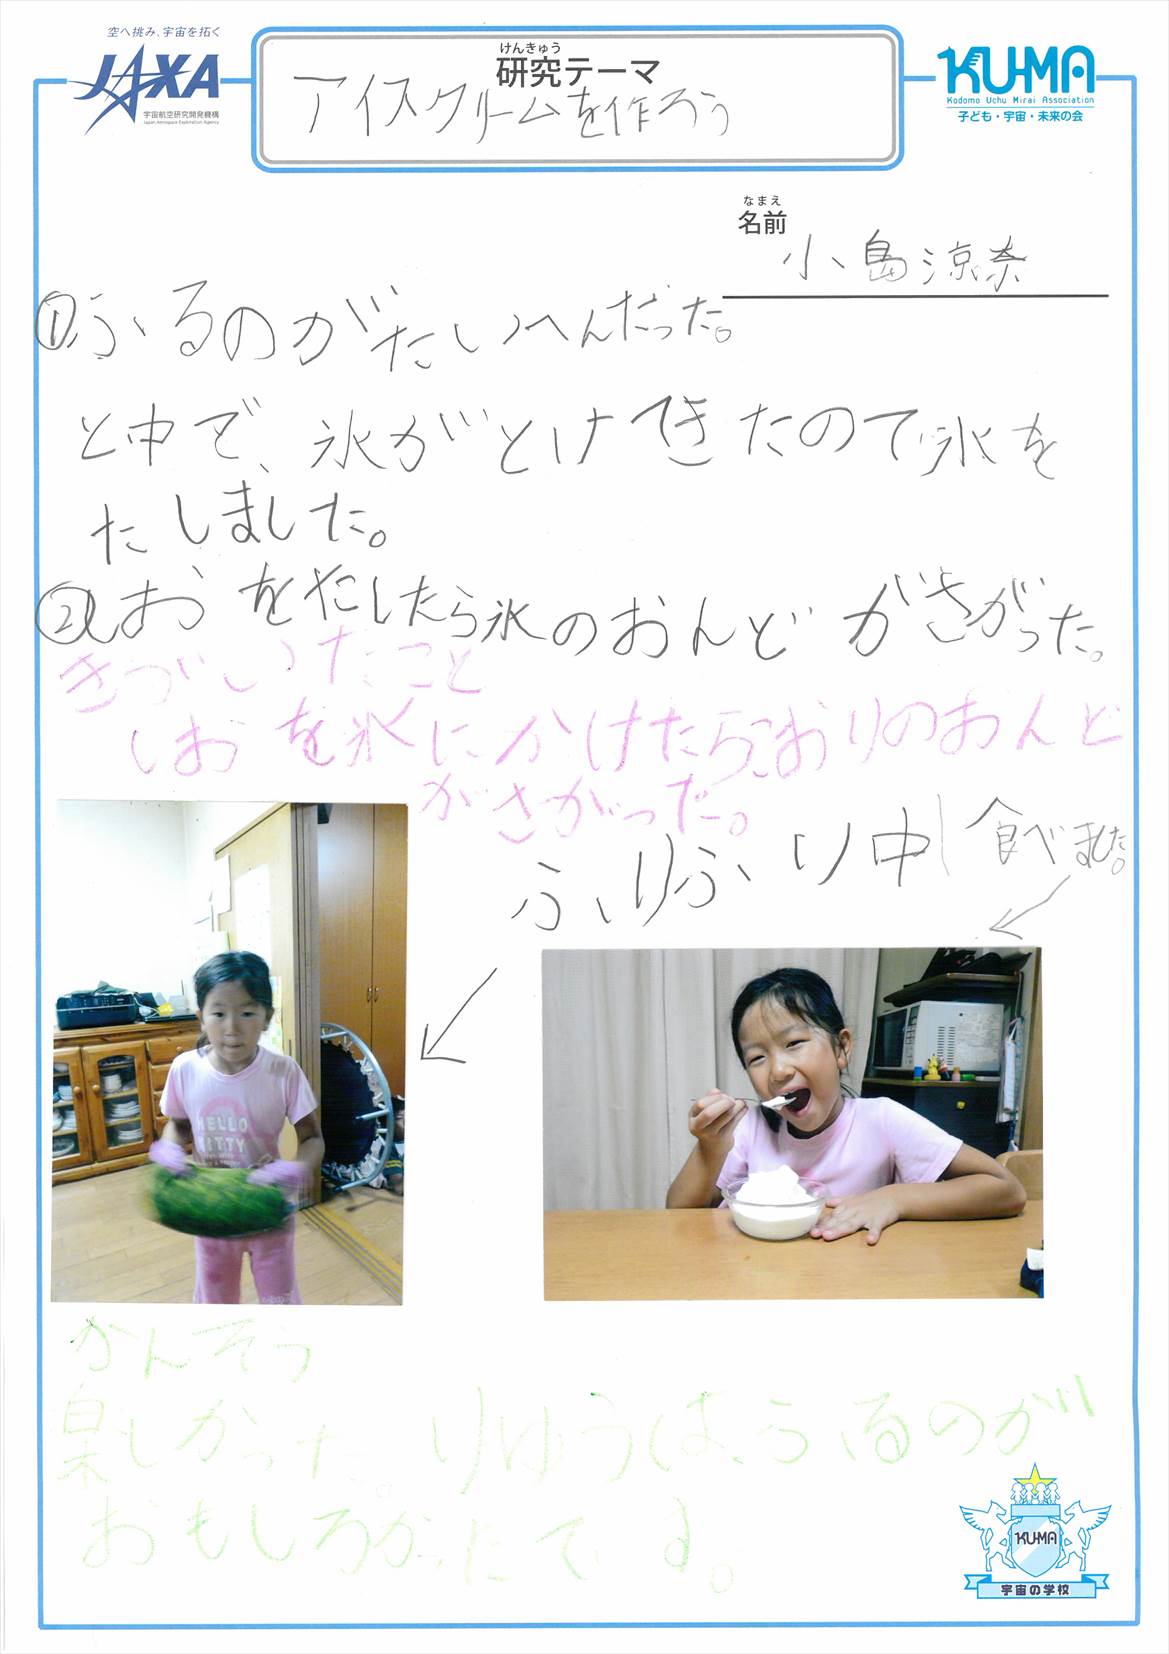 空へ挑み、宇宙を拓く
JAXA
宇宙航空研究開発機構
Japan Aerospace Exploration Agency
けんきゅう
研究テーマ
アイスクリームを作ろう
KU-MA
Kodomo Uchu Mirai Association
子ども・宇宙・未来の会
なまえ
名前
小島涼奈
①ふるのがたいへんだった。
と中で、氷がとけてきたので氷を
たしました。
②しおをたしたら氷のおんどがさがった。
きづいたこと
しおを氷にかけたらこおりのおんど
がさがった。
ふりふり中
食べました。
HELLO
KITTY
かんそう
楽しかった。りゆうは、ふるのが
おもしろかったです。
KU-MA
宇宙の学校